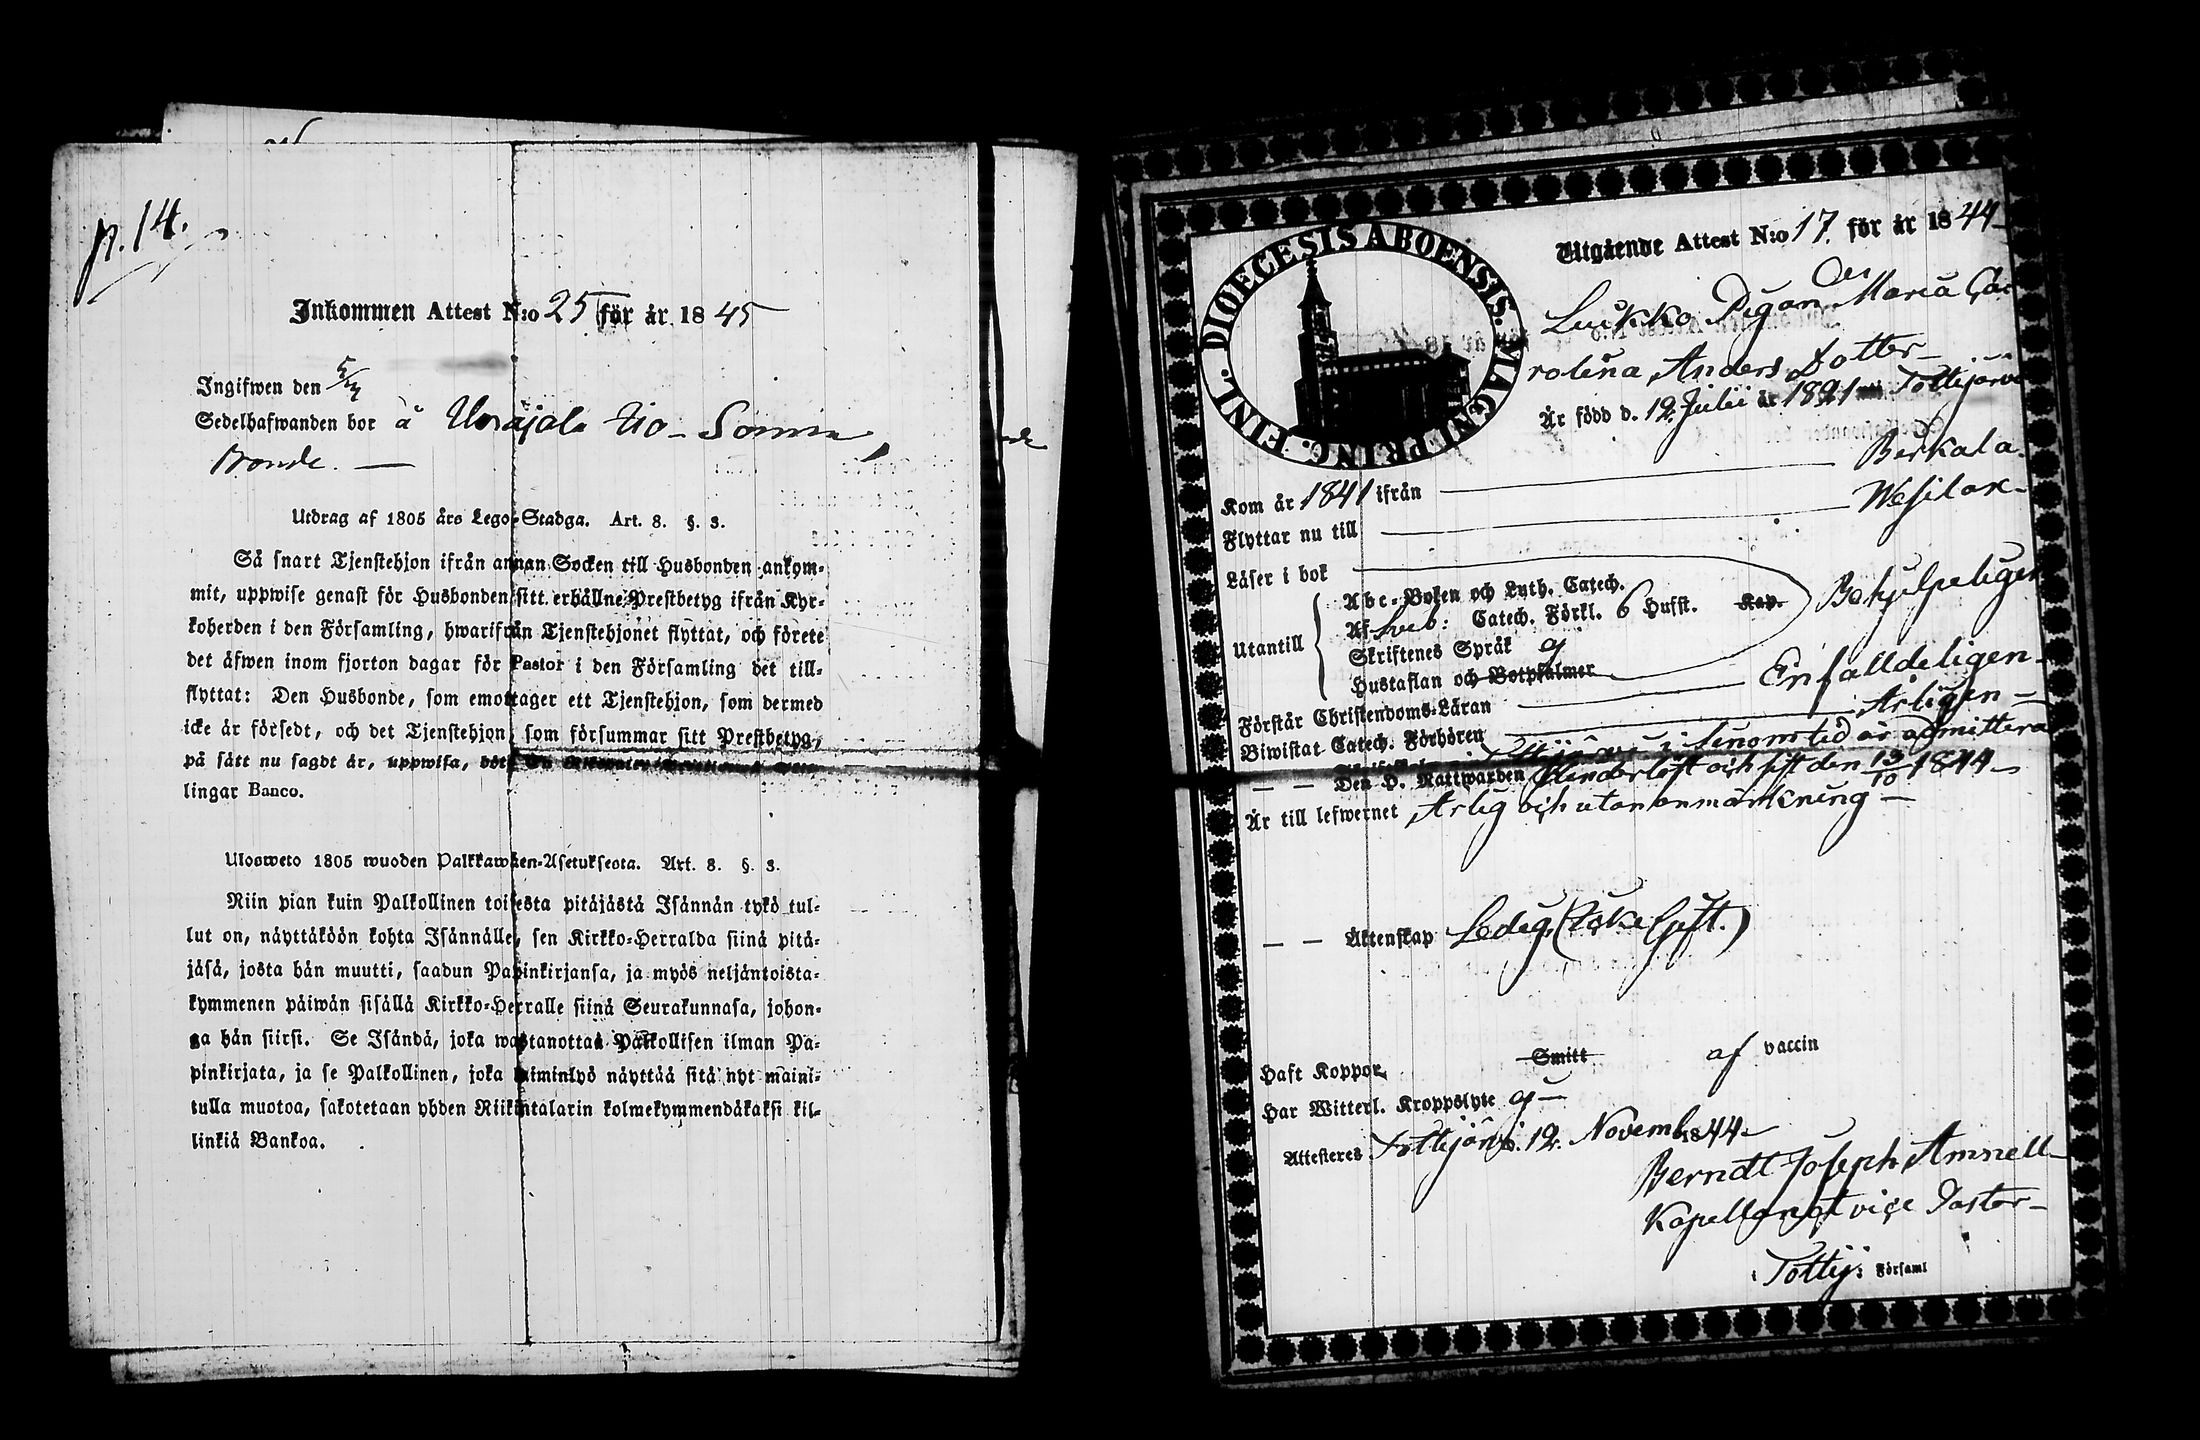 p. 14.
Inkommen Attest N:o 25 för år 1845
Ingifwen den 5/4
Sedelhafwanden bor å
Bonde. —
Utdrag af 1805 års Lego-Stadga. Art. 8. §. 3.
Så snart Tjenstehjon ifrån annan Socken till Husbonden ankom-
mit, uppwise genast för Husbonden sitt erhållne Prestbetyg ifrån Kyr-
koherden i den Församling, hwarifrån Tjenstehjonet flyttat, och förete
det äfwen inom fjorton dagar för Pastor i den Församling det till-
flyttat: Den Husbonde, som emottager ett Tjenstehjon, som dermed
icke är försedt, och det Tjenstehjon, som försummar sitt Prestbetyg,
på sätt nu sagdt är, uppwisa,
lingar Banco.
Ulosweto 1805 wuoden Palkkawäen-Asetuksesta. Art. 8. §. 3.
Niin pian kuin Palkollinen toisesta pitäjästä Isännän tykö tul-
lut on, näyttäköön kohta Isännälle, sen Kirkko-Herralda siinä pitä-
jäsä, josta hän muutti, saadun Papinkirjansa, ja myös neljäntoista-
kymmenen päiwän sisällä Kirkko-Herralle siinä Seurakunnasa, johon-
ga hän siirsi. Se Isändä, joka wastanottaa Palkollisen ilman Pa-
pinkirjata, ja se Palkollinen, joka laiminlyö näyttää sitä nyt maini-
tulla muotoa, sakotetaan yhden Riikintalarin kolmekymmendäkaksi kil-
linkiä Bankoa.
DIOECESIS ABOENSIS. MAGNI PRINC. FINL.
Utgående Attest N:o 17. för år 1844
Lukko Pigan Maria Ca
rolina Anders Dotter
Är född d. 12 Julii år 1821 Tottijärvi
Kom år 1841 ifrån Birkala.
Flyttar nu till Wesilax
Läser i bok
Utantill
Abc-Boken och Luth. Catech.
Af Sveb: Catech. Förkl. 6 Hufst. Kap.
Behjelpeligen
Skriftenes Språk ej
Hustaflan och Botpsalmer
Förstår Christendoms-Läran Enfalldeligen
Biwistat Catech. Förhören Årligen
— — Den H. Nattwarden den 13/10 1844
Är till lefwernet Ärlig och utan anmärkning
— — Äktenskap Ledig (Icke Gift.)
Haft Koppor Smitt af vaccin
Har Witterl. Kroppslyte ej
Attesteres Tottijärvi. 12. Novemb. 1844
Berndt Joseph Amnell
Kapellan et vice Pastor
i Tottij: Församl